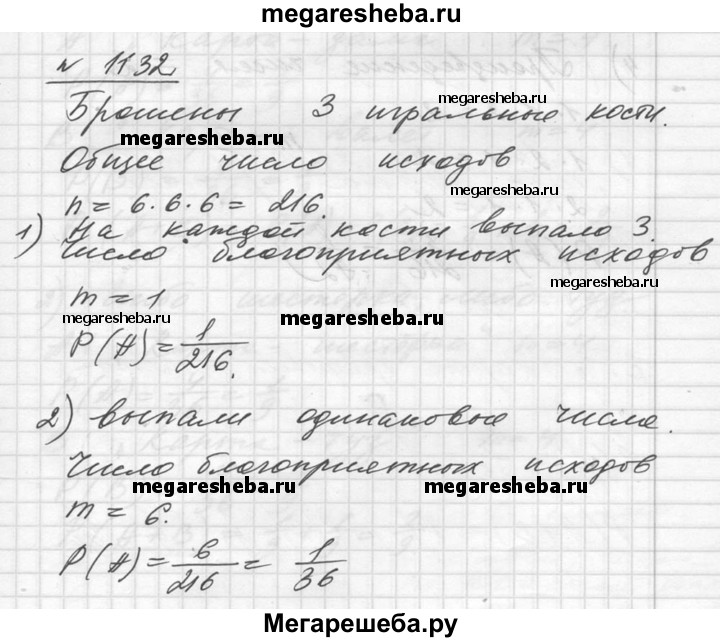 megaresheba.ru
№ 1132
Брошены 3 игральные кости.
megaresheba.ru
megaresheba.ru
Общее число исходов
megaresheba.ru
n = 6·6·6 = 216.
1) На каждой кости выпало 3.
Число благоприятных исходов
m = 1
megaresheba.ru
megaresheba.ru
megaresheba.ru
P(A) = 1/216.
2) выпали одинаковые числа.
Число благоприятных исходов
megaresheba.ru
megaresheba.ru
m = 6.
P(A) = 6/216 = 1/36
Мегарешеба.ру